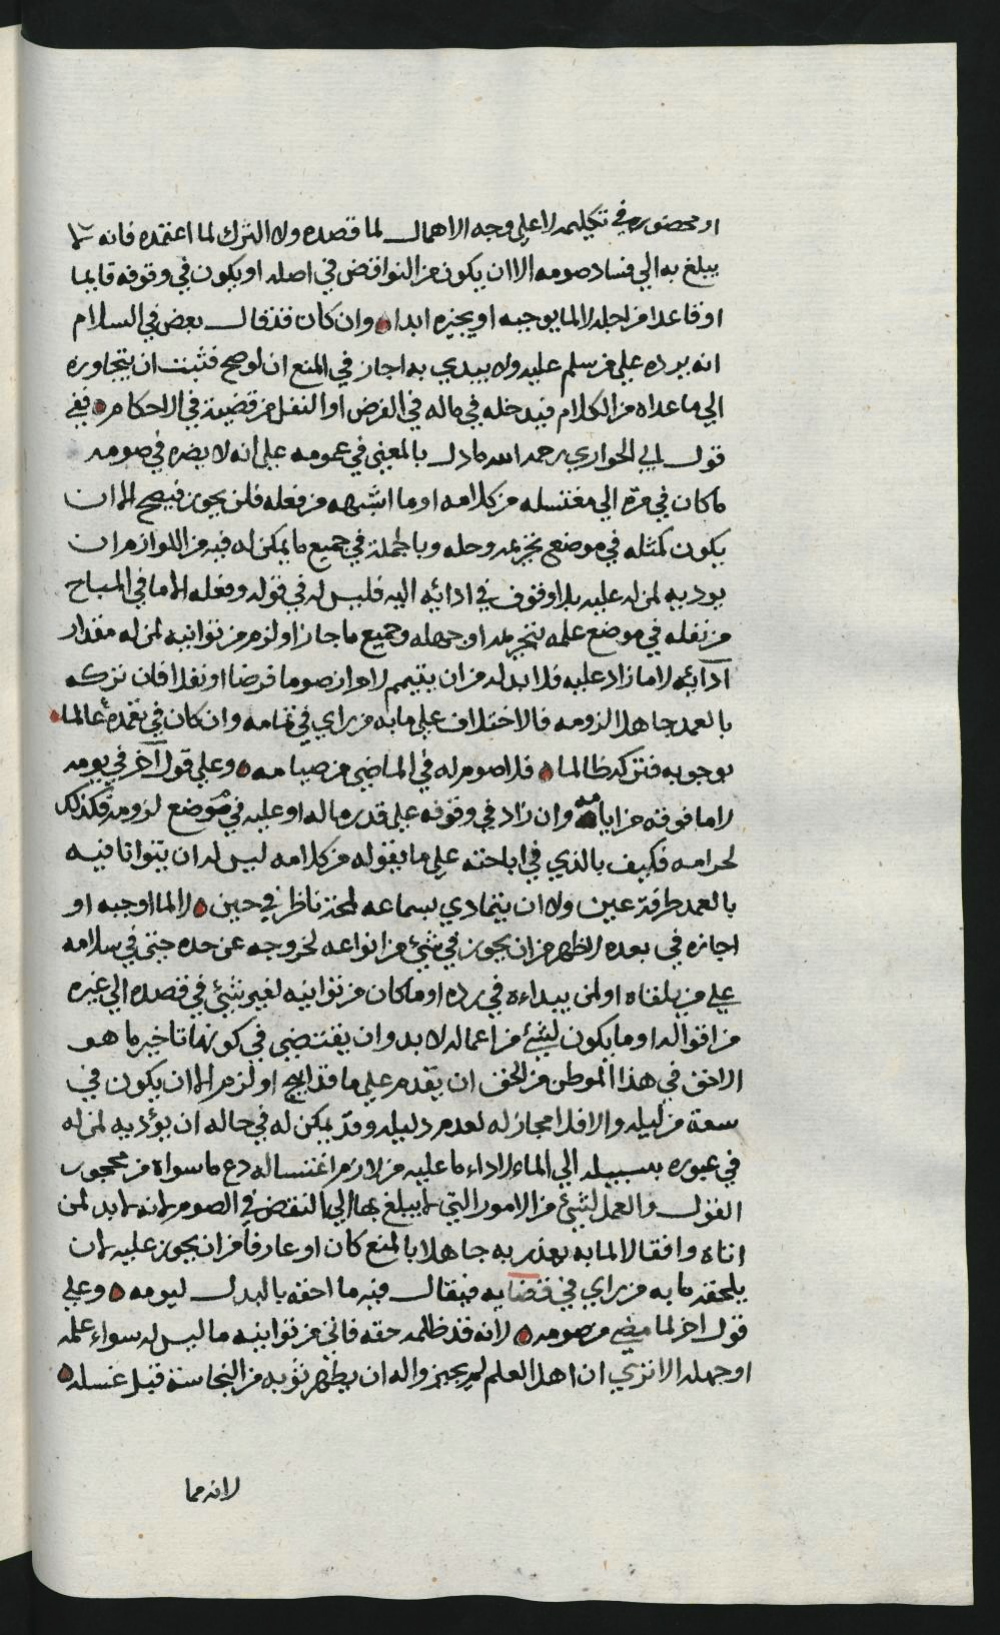 او محضوره في تكليمه لا على وجه الاهمال لما قصده ولا الترك لما اعتقده فانه لا
يبلغ به الي فساد صومه الا ان يكون من النواقض في اصله او يكون في وقوفه قايما
او قاعدا من اجله لا لما يوجبه او يجيزه ابدا وان كان قد قال بعض في السلام
انه يرده علي من سلم عليه ولا يبدي به اجاز في المنع ان لو صح فثبت ان يتجاوزه
الي ما عداه من الكلام فيدخله في ماله في الفرض او النفل من قضية في الاحكام ففي
قول ابي الحواري رحمه الله ما دل بالمعني في عمومه علي انه لا يضره في صومه
ما كان في مره الي مغتسله من كلامه او ما اشبهه من فعله فلن يجوز فيصح الا ان
يكون كمثله في موضع تحريمه وحله وبالجملة في جميع ما يمكن له فيه من اللوازم ان
يوديه لمن له عليه بلا وقوف في ادائه اليه فليس له في قوله وفعله الا ما في المباح
من نفله في موضع علمه بتحريمه او جهله وجميع ما جاز او لزم من توانيه لمن له مقدار
آدآئه لا ما زاد عليه فلا بد له من ان يتيمم لا وان صوما فرضا او نفلا فان تركه
بالعمد جاهلا لزومه فالاختلاف علي ما به من راي في تمامه وان كان في تعمده عالما
بوجوبه فتركه ظالما فلا صوم له في الماضي من صيامه وعلي قول آخر في يومه
لا ما فوقه من ايامه وان زاد في وقوفه علي قدر ماله او عليه في موضع لزومه فكذلك
لحرامه فكيف بالذي في اباحته علي ما يقوله من كلامه ليس له ان يتوانا فيه
بالعمد طرفة عين ولا ان يتمادي بسماعه لمحة ناظر في حين الا لما اوجبه او
اجازه في بعده الاظهر من ان يجوز في شيئ من انواعه لخروجه عن حده حتي في سلامه
علي من يلقاه او لمن يبداءه في رده او ما كان من توانيه لغير شيئ في قصده الي غيره
من اقواله او ما يكون لشيء من اعماله لا بد وان يقتضي في كونها تاخير ما هو
الاحق في هذا الموطن من الحق ان يقدم علي ما قد ابيح او لزم الا ان يكون في
سعة من ليله والا فلا مجاز له لعدم دليله وقد يمكن له في حاله ان يؤديه لمن له
في عبوره بسبيله الي الماء لاداء ما عليه من لازم اغتساله دع ما سواه من محجور
القول والعمل لشيئ من الامور التي لا يبلغ بها الي النقض في الصوم لانه لا بد لمن
اتاه وافقا لا لما به يعذر به جاهلا بالمنع كان او عارفا من ان يجوز عليه لان
يلحقه ما به من راي في قضايه فيقال فيه ما احقه بالبدل ليومه وعلي
قول اخر لما مضي من صومه لانه قد ظلمه حقه فاني من توانيه ما ليس له سواء علمه
او جهله الا تري ان اهل العلم لم يجيزوا له ان يطهر ثوبه من النجاسة قبل غسله
لانه مما